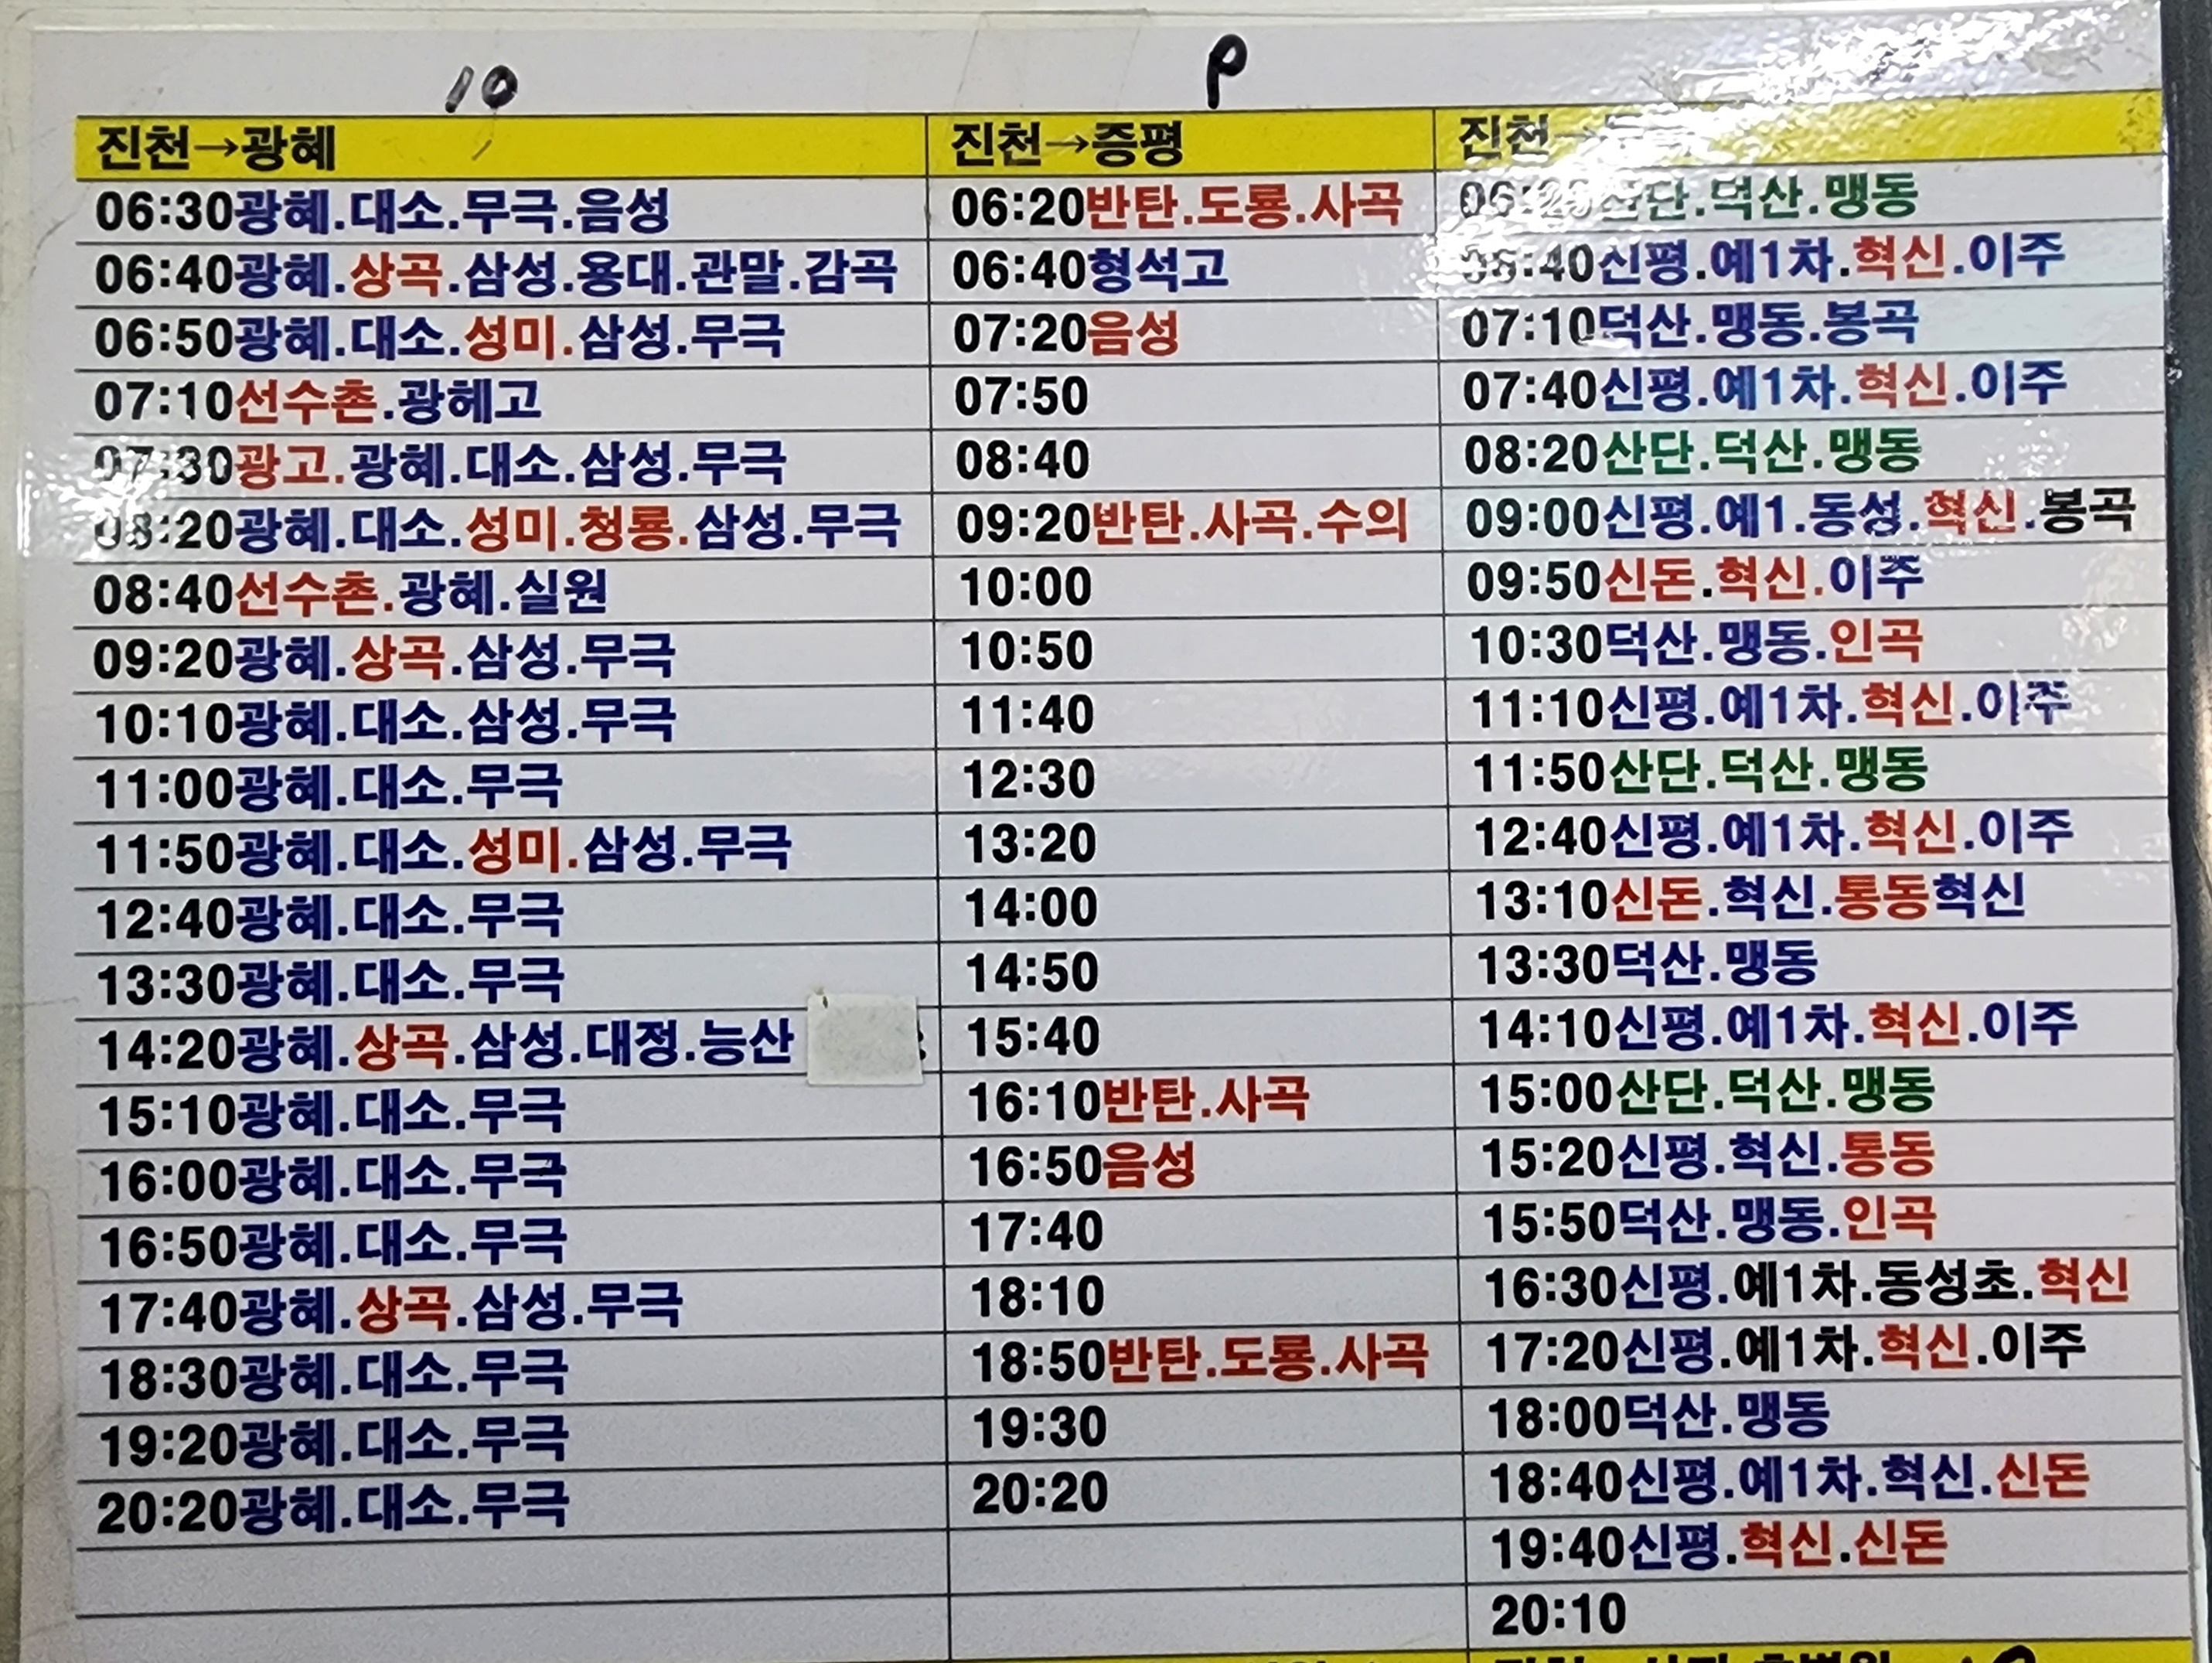 10
진천→광혜
06:30광혜.대소.무극.음성
06:40광혜.상곡.삼성.용대.관말.감곡
06:50광혜.대소.성미.삼성.무극
07:10선수촌.광헤고
07:30광고.광혜.대소.삼성.무극
08:20광혜.대소.성미.청룡.삼성.무극
08:40선수촌.광혜.실원
09:20광혜.상곡.삼성.무극
10:10광혜.대소.삼성.무극
11:00광혜.대소.무극
11:50광혜.대소.성미.삼성.무극
12:40광혜.대소.무극
13:30광혜.대소.무극
14:20광혜.상곡.삼성.대정.능산
15:10광혜.대소.무극
16:00광혜.대소.무극
16:50광혜.대소.무극
17:40광혜.상곡.삼성.무극
18:30광혜.대소.무극
19:20광혜.대소.무극
20:20광혜.대소.무극
진천→증평
06:20반탄.도룡.사곡
06:40형석고
07:20음성
07:50
08:40
09:20반탄.사곡.수의
10:00
10:50
11:40
12:30
13:20
14:00
14:50
15:40
16:10반탄.사곡
16:50음성
17:40
18:10
18:50반탄.도룡.사곡
19:30
20:20
진천→
06:20산단.덕산.맹동
06:40신평.예1차.혁신.이주
07:10덕산.맹동.봉곡
07:40신평.예1차.혁신.이주
08:20산단.덕산.맹동
09:00신평.예1.동성.혁신.봉곡
09:50신돈.혁신.이주
10:30덕산.맹동.인곡
11:10신평.예1차.혁신.이주
11:50산단.덕산.맹동
12:40신평.예1차.혁신.이주
13:10신돈.혁신.통동혁신
13:30덕산.맹동
14:10신평.예1차.혁신.이주
15:00산단.덕산.맹동
15:20신평.혁신.통동
15:50덕산.맹동.인곡
16:30신평.예1차.동성초.혁신
17:20신평.예1차.혁신.이주
18:00덕산.맹동
18:40신평.예1차.혁신.신돈
19:40신평.혁신.신돈
20:10